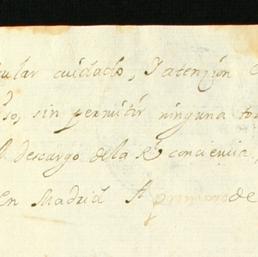 ular cuidado, I atenzion
so, sin permitir ninguna
descargo de la Rl conciencia,
En Madrid A primero de